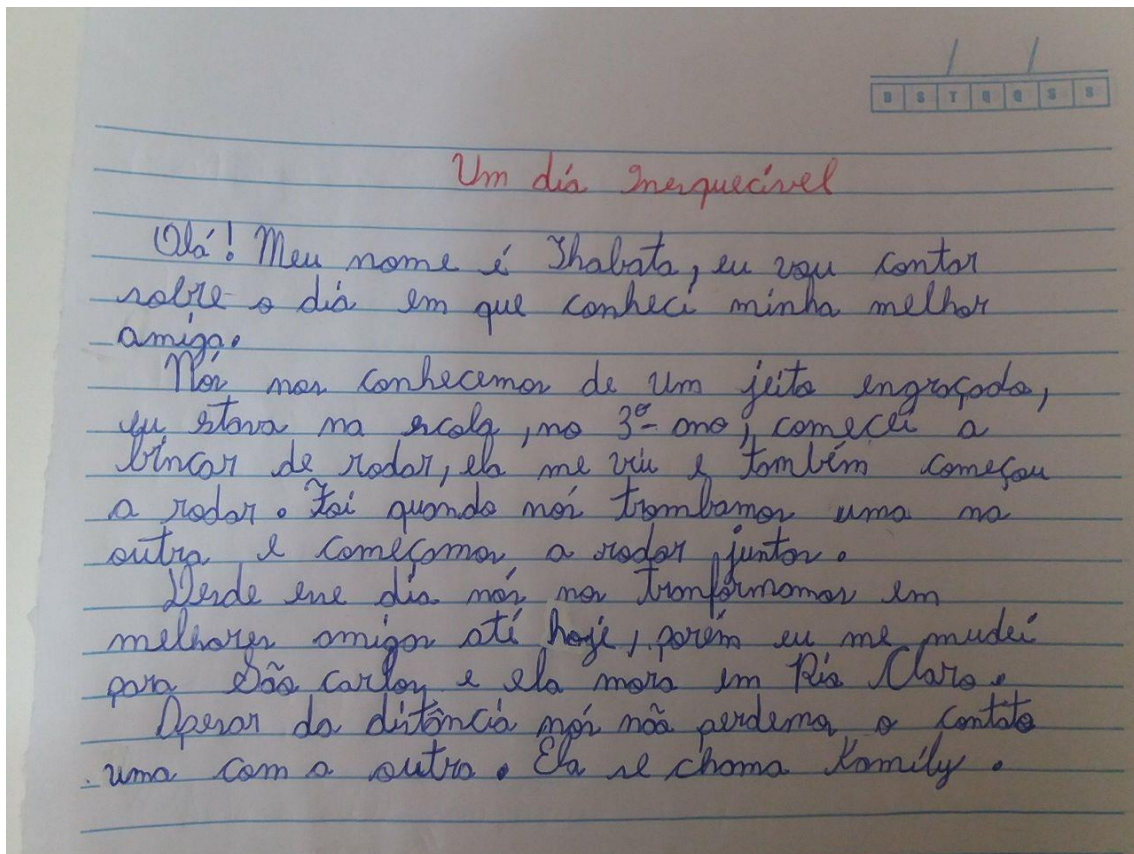 D S T Q Q S S
Um dia Inesquecível
Olá! Meu nome é Thabata, eu vou contar
sobre o dia em que conheci minha melhor
amiga.
Nós nos conhecemos de um jeito engraçado,
eu estava na escola, no 3º ano, comecei a
brincar de rodar, ela me viu e também começou
a rodar. Foi quando nós trombamos uma na
outra e começamos a rodar juntas.
Desde esse dia nós nos tranformamos em
melhores amigas até hoje, porém eu me mudei
para São Carlos e ela mora em Rio Claro.
Apesar da ditância nós não perdemos o contato
uma com a outra. Ela se chama Kamily.